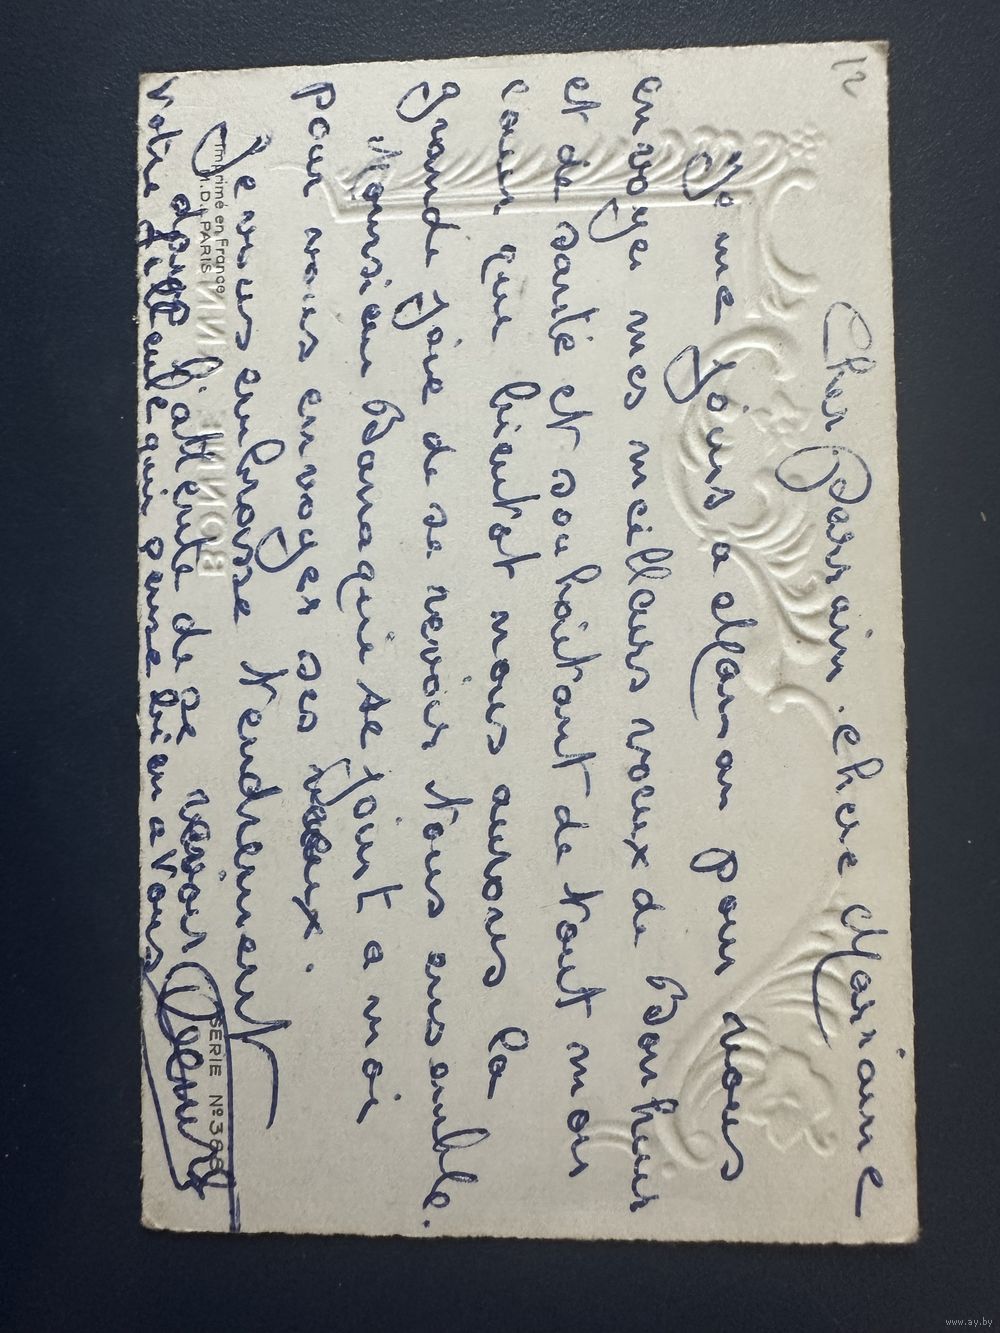 12
Cher Parrain. chere Marraine
Je me joins a Maman pour vous
envoyer mes meilleurs voeux de Bonheur
et de santé et souhaitant de tout mon
coeur que bientot nous aurons la
grande joie de se revoir tous ensemble.
Monsieur se joint a moi
pour vous envoyer ses voeux.
Je vous embrasse tendrement
dans l'attente de se revoir
votre filleule qui pense bien a vous
Imprimé en France
M.D. PARIS
SERIE N° 
BONNE ANNÉE
www.ay.by